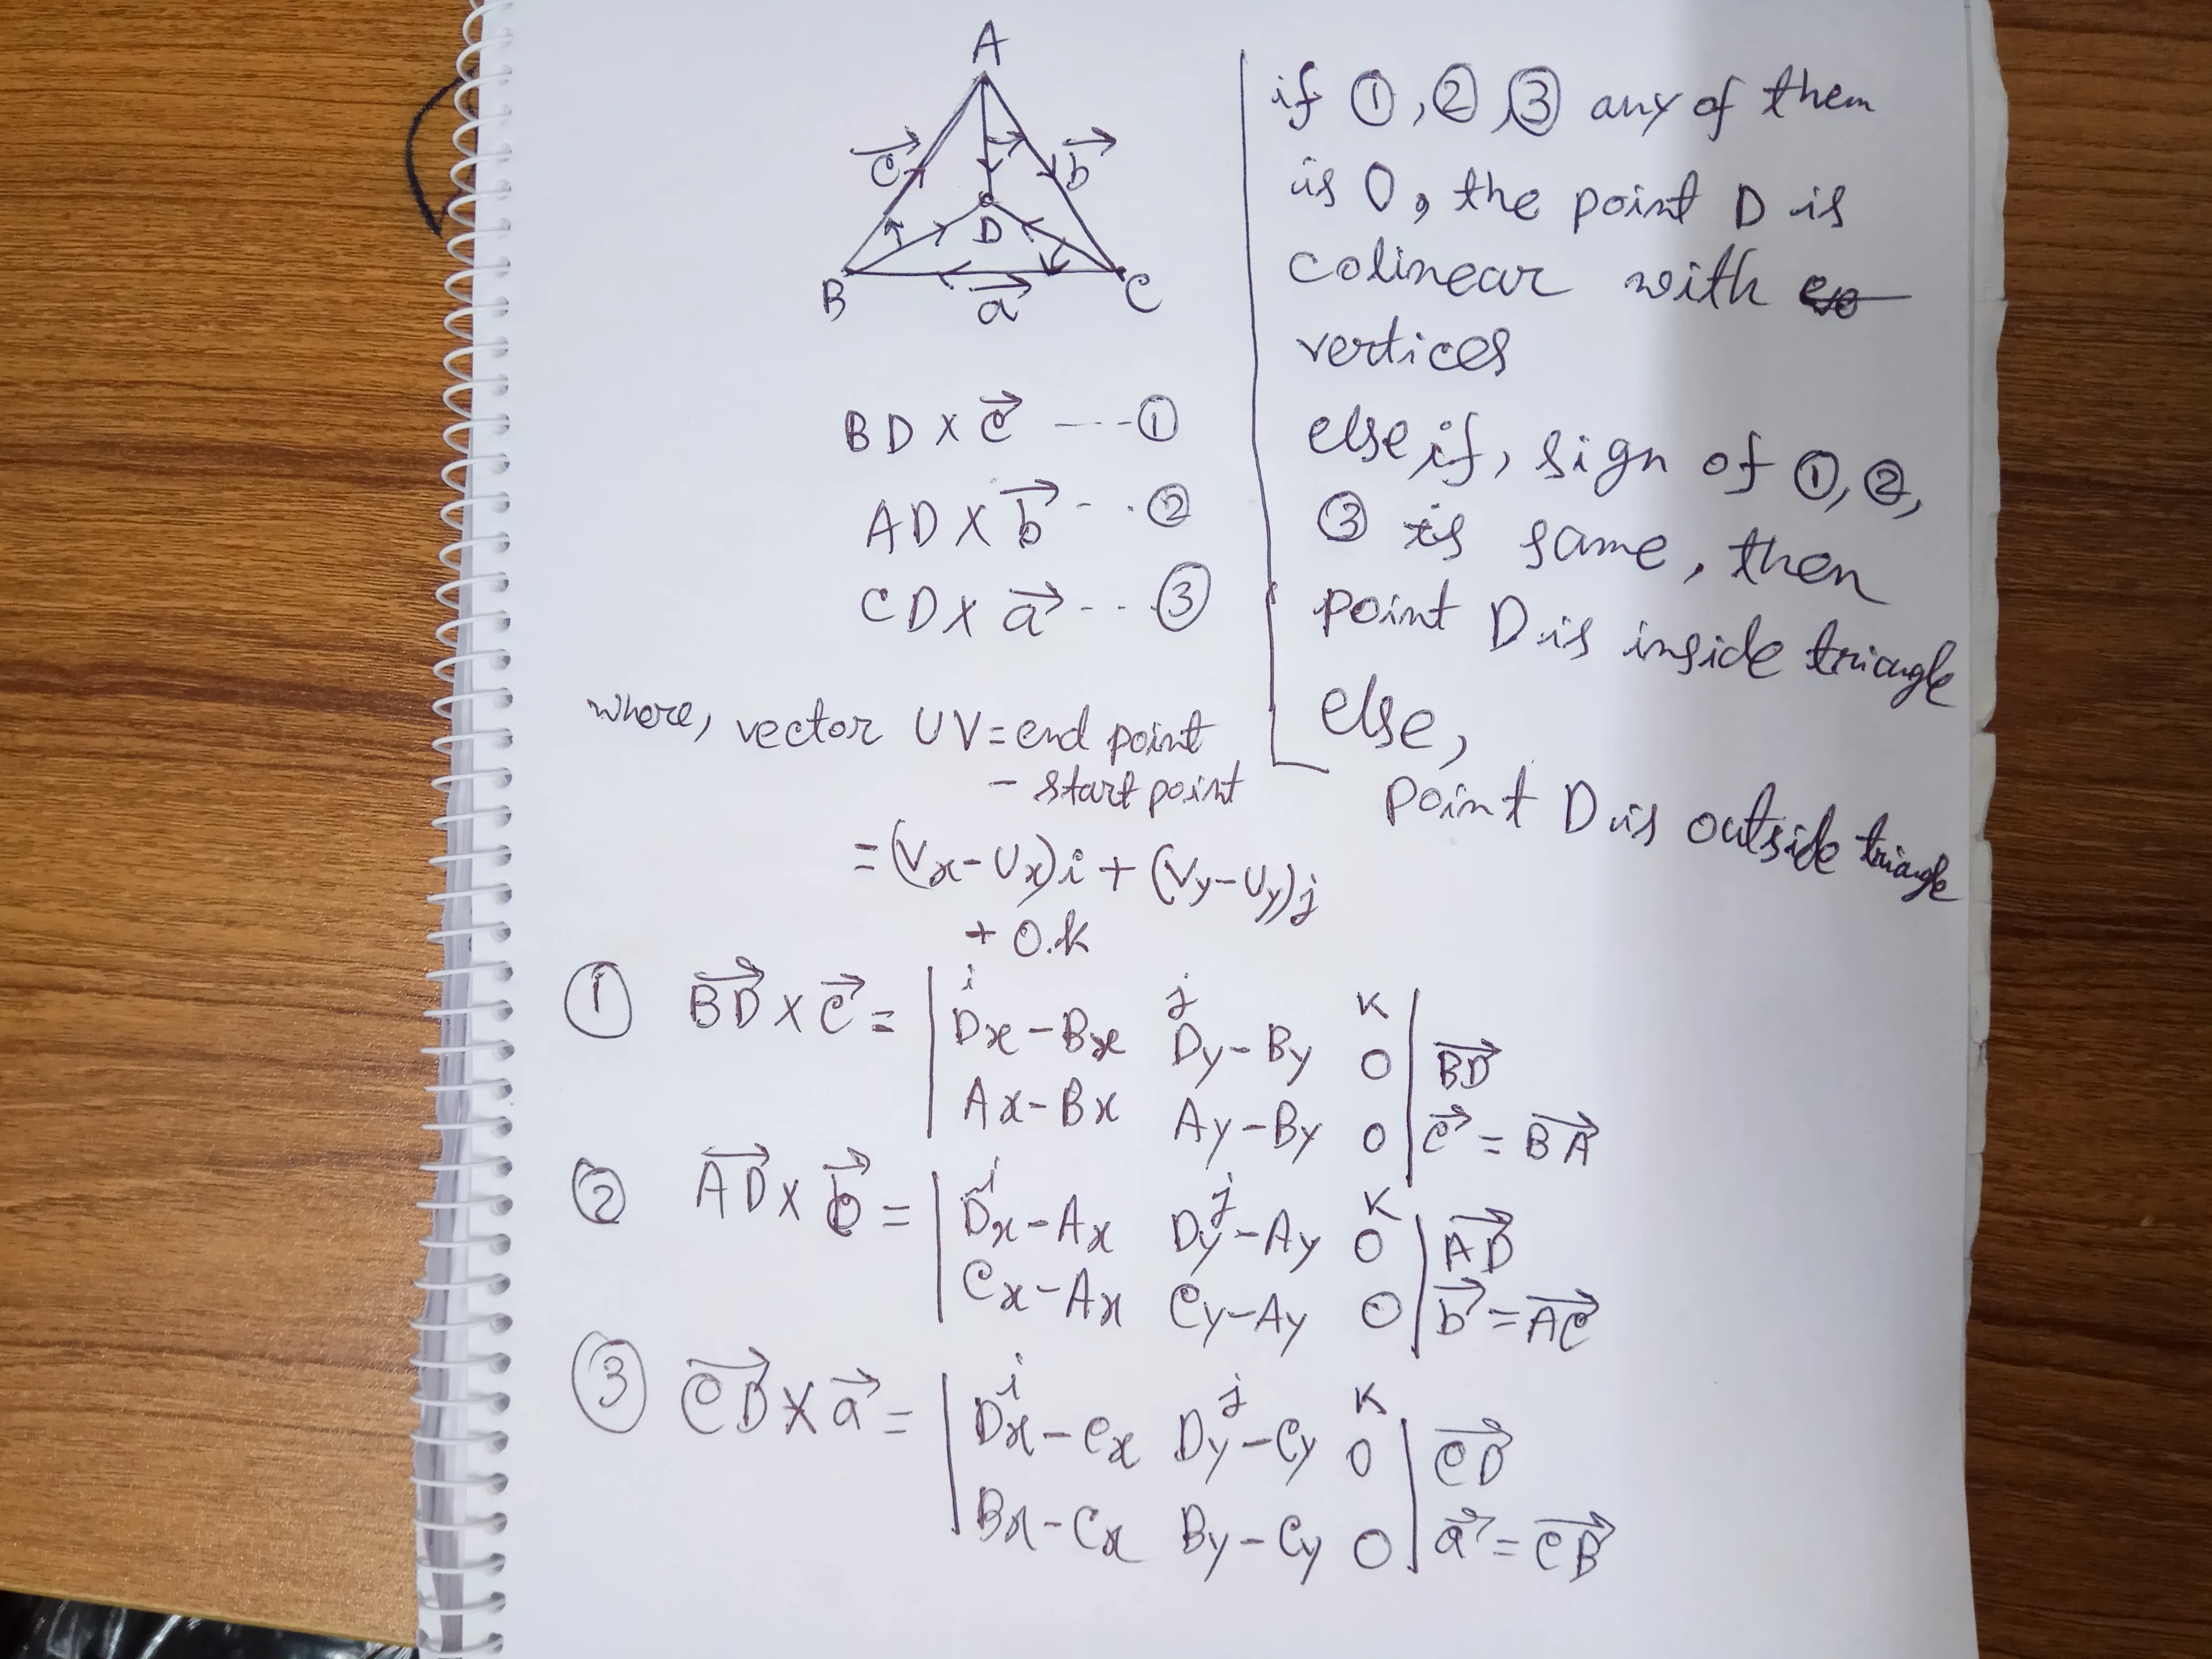 A
c
b
D
B
a
C
BD x c ---- ①
AD x b -- ②
CD x a --- ③
where, vector UV = end point
- start point
= (Vx - Ux)i + (Vy - Uy)j
+ 0.k
if ①, ②, ③ any of them
is 0, the point D is
colinear with
vertices
else if, sign of ①, ②,
③ is same, then
point D is inside triangle
else,
point D is outside triangle
① BD x c = | i j k |
Dx - Bx Dy - By 0 BD
Ax - Bx Ay - By 0 c = BA
② AD x b = | i j k |
Dx - Ax Dy - Ay 0 AD
Cx - Ax Cy - Ay 0 b = AC
③ CD x a = | i j k |
Dx - Cx Dy - Cy 0 CD
Bx - Cx By - Cy 0 a = CB